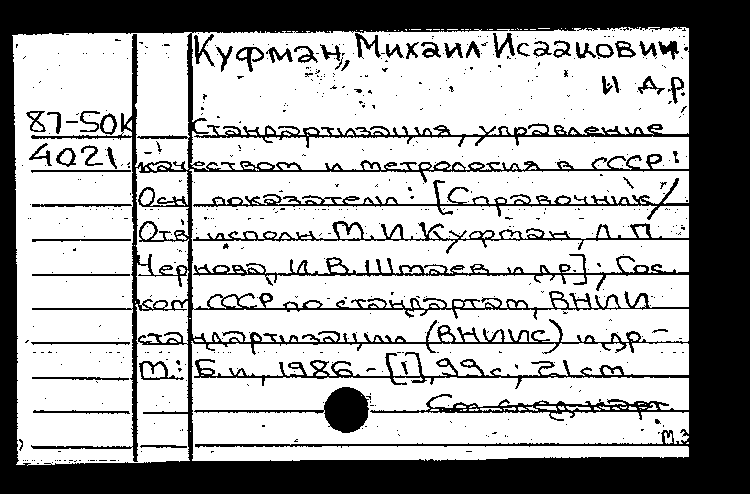 Куфман, Михаил Исаакович
и др.
87-50К Стандартизация, управление
4021 качеством и метрология в СССР:
Осн показатели: [Справочник/
Отв исполн М.И.Куфман, Л.П.
Чернова, И.В.Штаев и др.]; Гос.
ком. СССР по стандартам, ВНИИ
стандартизации (ВНИИС) и др. –
М.: Б.и., 1986. – [1], 99 с.; 21 см
См. след. карт.
М.З